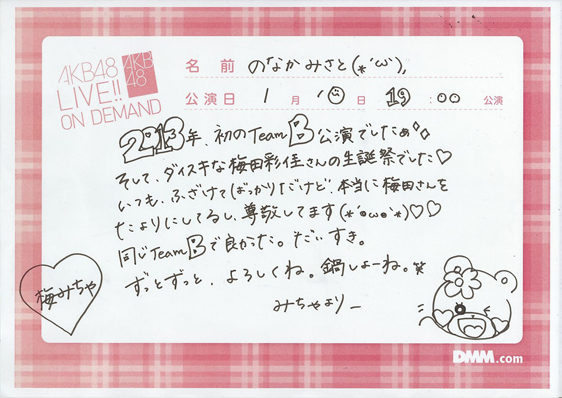 AKB48
LIVE!!
ON DEMAND
AKB
48
名 前 のなかみさと(*´ω`),
公演日 1 月 10 日 19 : 00 公演
2013年、初のTeam B 公演でしたぁ◇◇
そして、ダイスキな梅田彩佳さんの生誕祭でした♡
いつも、ふざけてばっかりだけど、本当に梅田さんを
たよりにしてるし、尊敬してます(*´ω`*)♡♡
同じTeam Bで良かった。だいすき。
ずっとずっと、よろしくね。鍋しよーね。笑
みちゃよりー
梅みちゃ
DMM.com